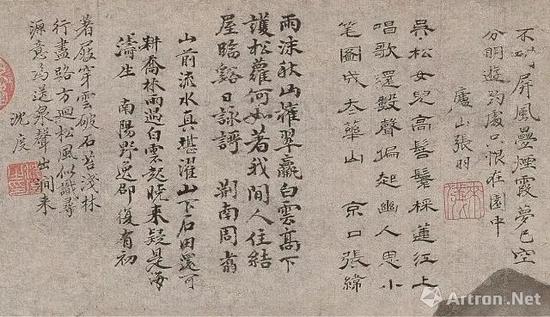 不屏風疊煙霞夢已空
分明遊釣處只恨在圖中
廬山張明
吳松女兒高髻鬟採蓮江上
唱歌還數聲偏起幽人思小
笔圖成太華山 京口張緯
雨沐秋山翠白雲高下
護松蘿何如著我閒人住結
屋臨谿日詠謌 荊南周翥
山前流水真堪濯山下石田還可
耕喬林雨過白雲起曉来疑是海
濤生 南陽野逸郎復有初
著屐穿雲破石苔淺林
行盡路方迴松風似識尋
源意為送泉聲出澗来
沈
Artron.Net